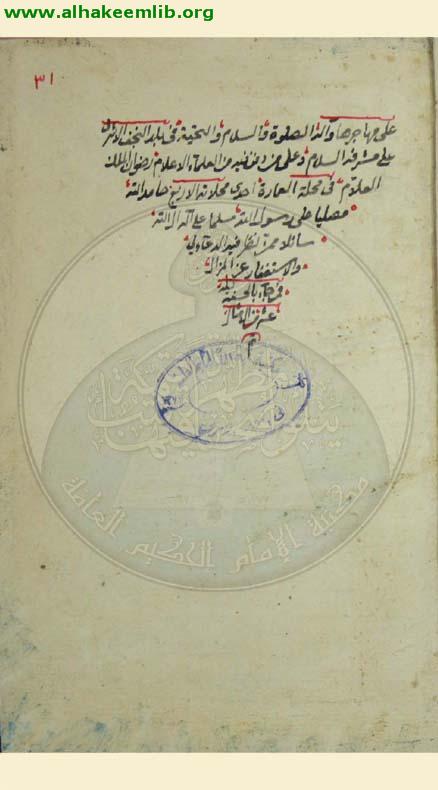 www.alhakeemlib.org
٣١
على مهاجرها وآله الصلوة والسلام والتحية في بلد النجف الاشرف
على مشرفه السلام وعلى من دفن فيه من العلماء الاعلام رضوان الملك
العلام في محلة العمارة احدى محلاته الاربع حامدا لله
مصليا على رسول الله مسلما على آل الله
سائلا ممن نظر فيه الدعاء لي
والاستغفار عن الزلل
فمن جاء بالحسنة فله
عشر امثالها
م
مكتبة الإمام الحكيم العامة